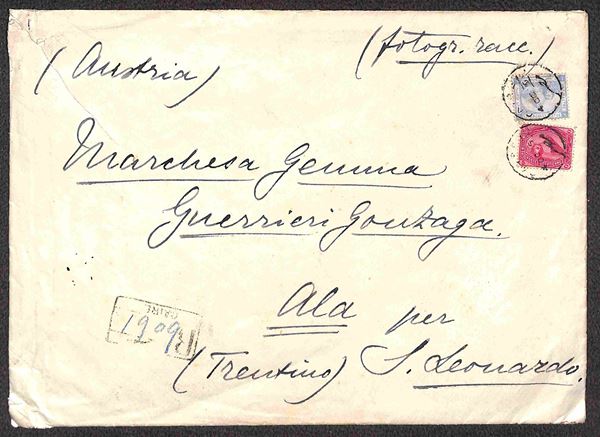 (fotogr. racc.)
(Austria)
Marchesa Gemma
Guerrieri Gonzaga.
Ala per
(Trentino) S. Leonardo.
R
CAIRE